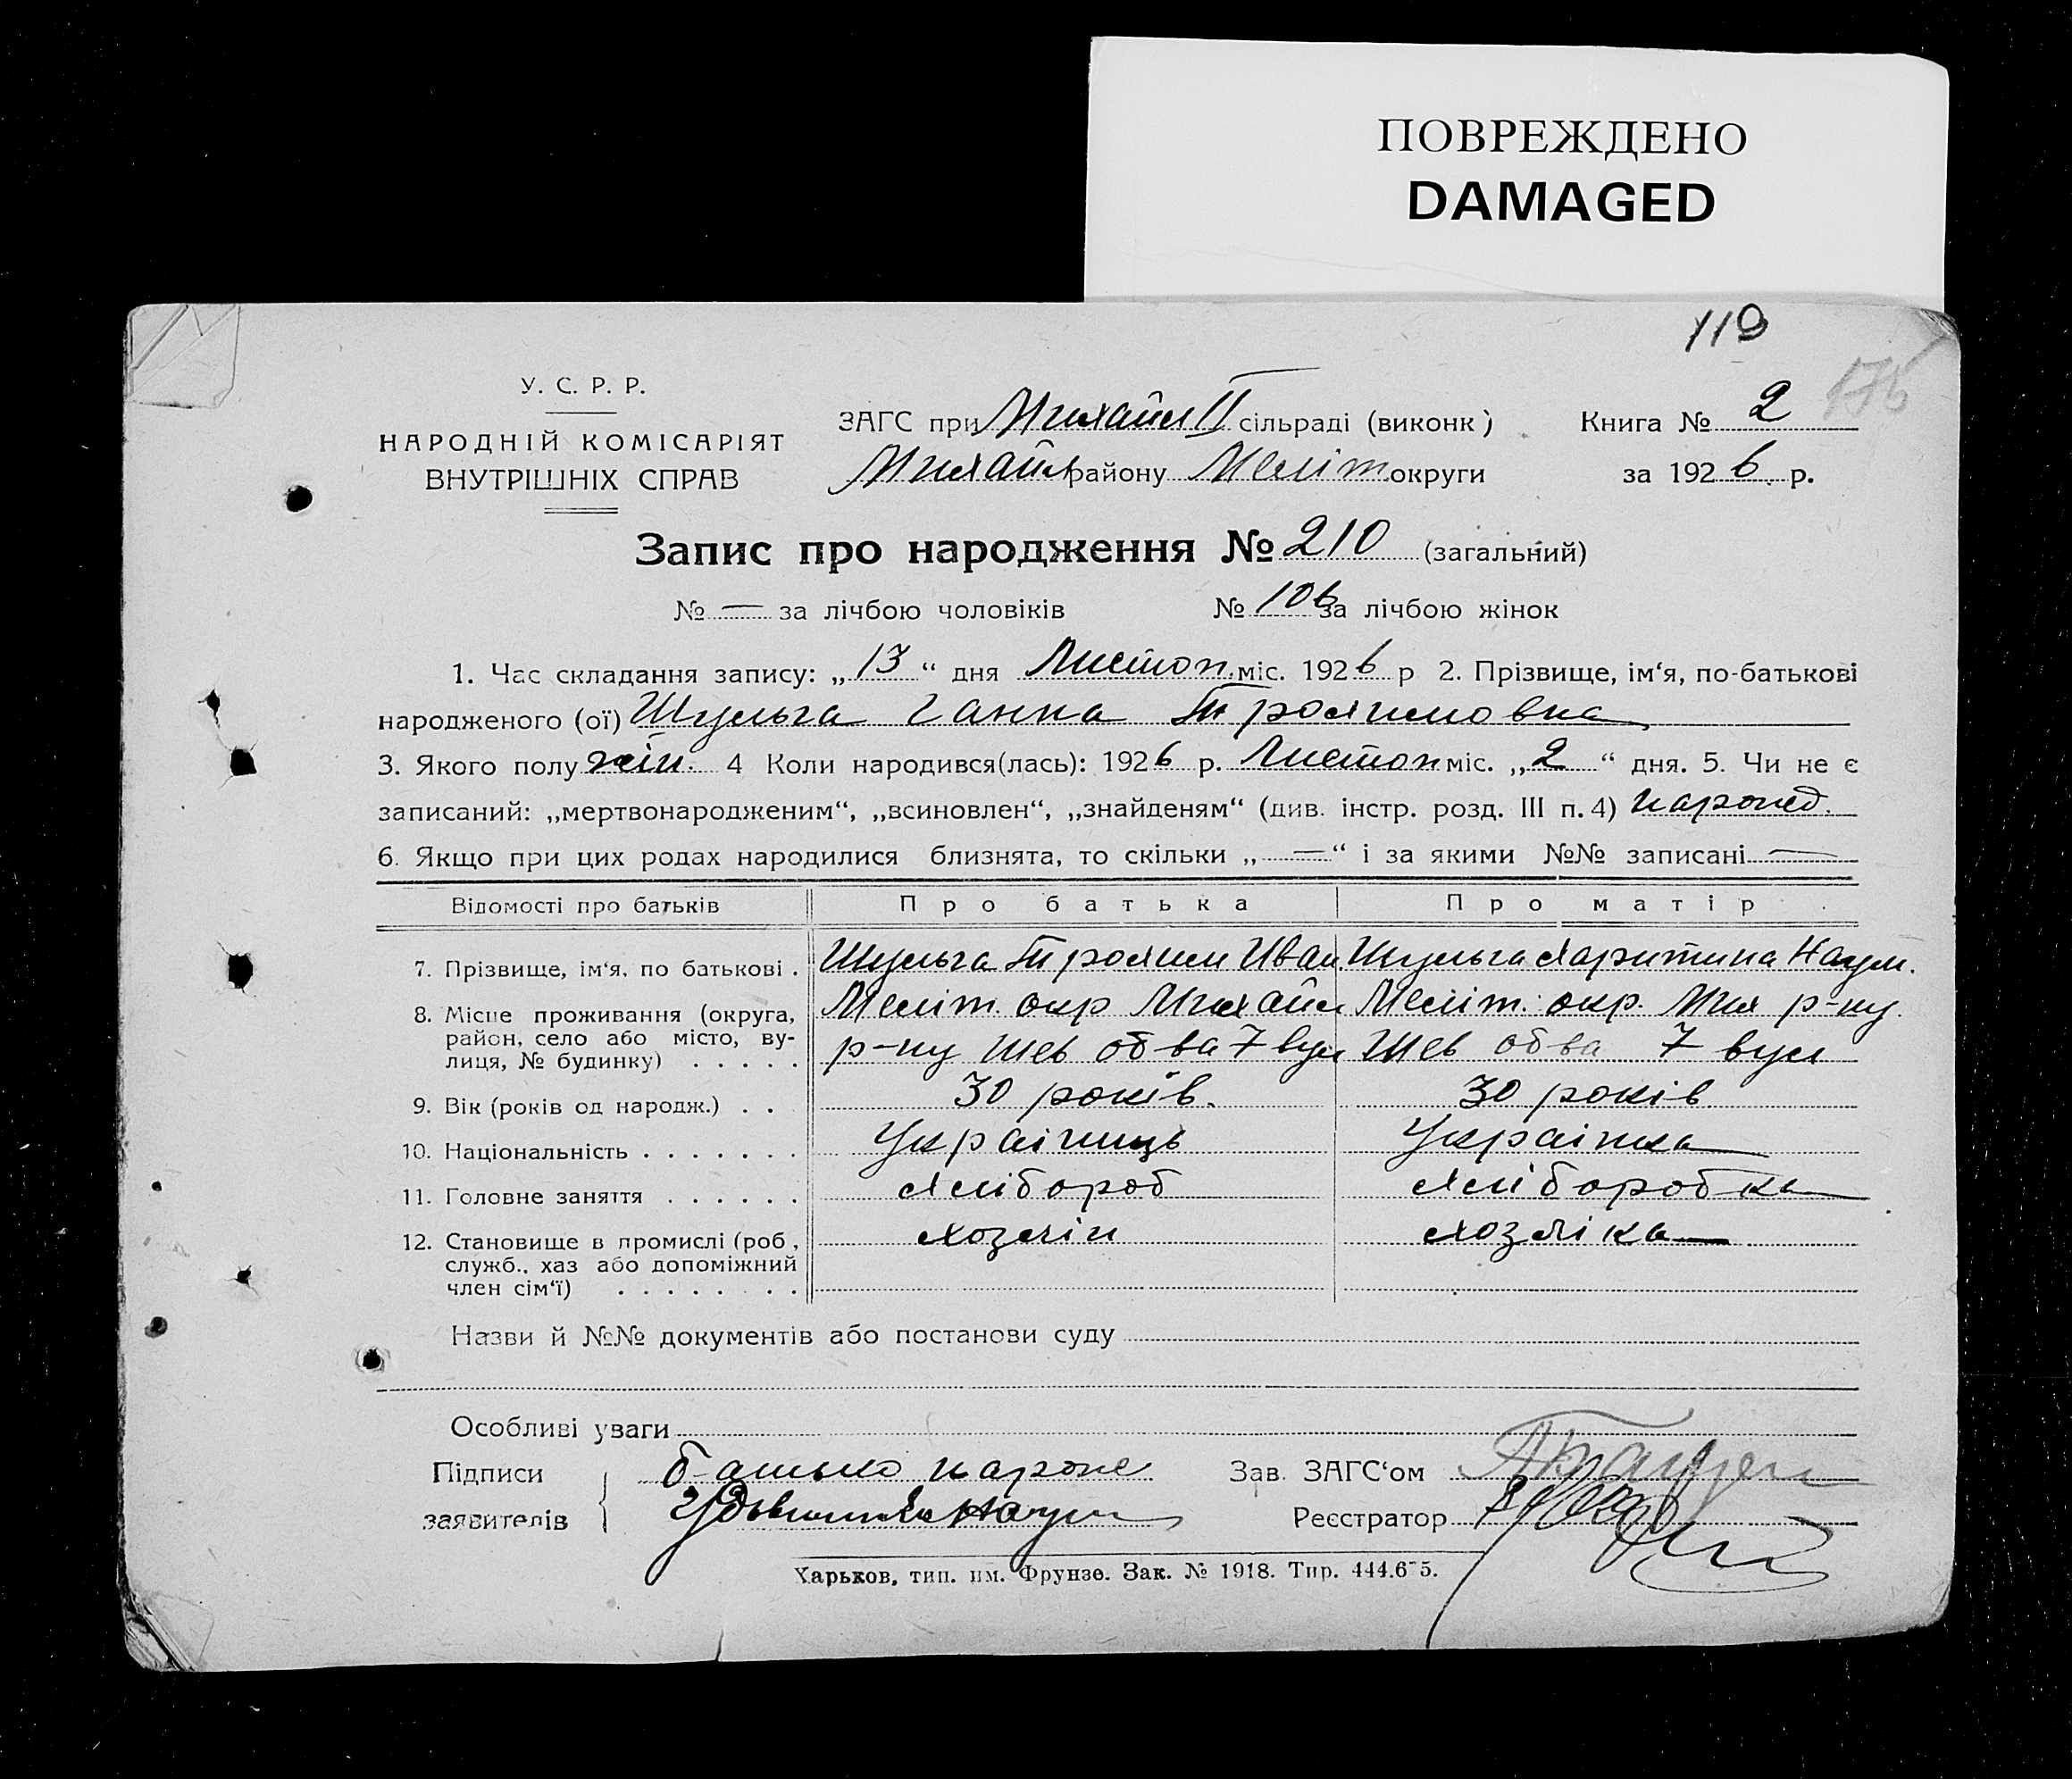 ПОВРЕЖДЕНО
DAMAGED
119
175
У. С. Р. Р.
НАРОДНІЙ КОМІСАРІЯТ
ВНУТРІШНІХ СПРАВ
ЗАГС при Михайл II сільраді (виконк)
Михайл району Меліт округи
Книга № 2
за 1926 р.
Запис про народження № 210 (загальний)
№ — за лічбою чоловіків № 106 за лічбою жінок
1. Час складання запису: „13“ дня Листоп. міс. 1926 р 2. Прізвище, ім‘я, по-батькові
народженого (ої) Шульга Ганна Трохимовна
3. Якого полу жін. 4 Коли народився(лась): 1926 р. Листоп міс. „2“ дня. 5. Чи не є
записаний: „мертвонародженим“, „всиновлен“, „знайденям“ (див. інстр. розд. III п. 4) нарожд.
6. Якщо при цих родах народилися близнята, то скільки „—“ і за якими №№ записані —
Відомості про батьків Про батька Про матір
7. Прізвище, ім‘я, по батькові . Шульга Трохим Иван. Шульга Харитина Наум.
8. Місце проживання (округа, район, село або місто, вулиця, № будинку) . . . . .
Меліт. окр Михайл
р-ну Шев об-ва 7 вул
Меліт. окр. Мих р-ну
Шев об ва 7 вул
9. Вік (років од народж.) . . 30 років. 30 років
10. Національність . . . . . . . Українць Українка
11. Головне заняття . . . . . . Хлібороб Хліборобка
12. Становище в промислі (роб., служб., хаз або допоміжний член сім‘ї) . . . . . . . .
Хозяін Хозяіка
Назви й №№ документів або постанови суду
Особливі уваги
Підписи
заявителів
батько
Зав. ЗАГС‘ом
Реєстратор
Харьков, тип. им. Фрунзе. Зак. № 1918. Тир. 444.675.